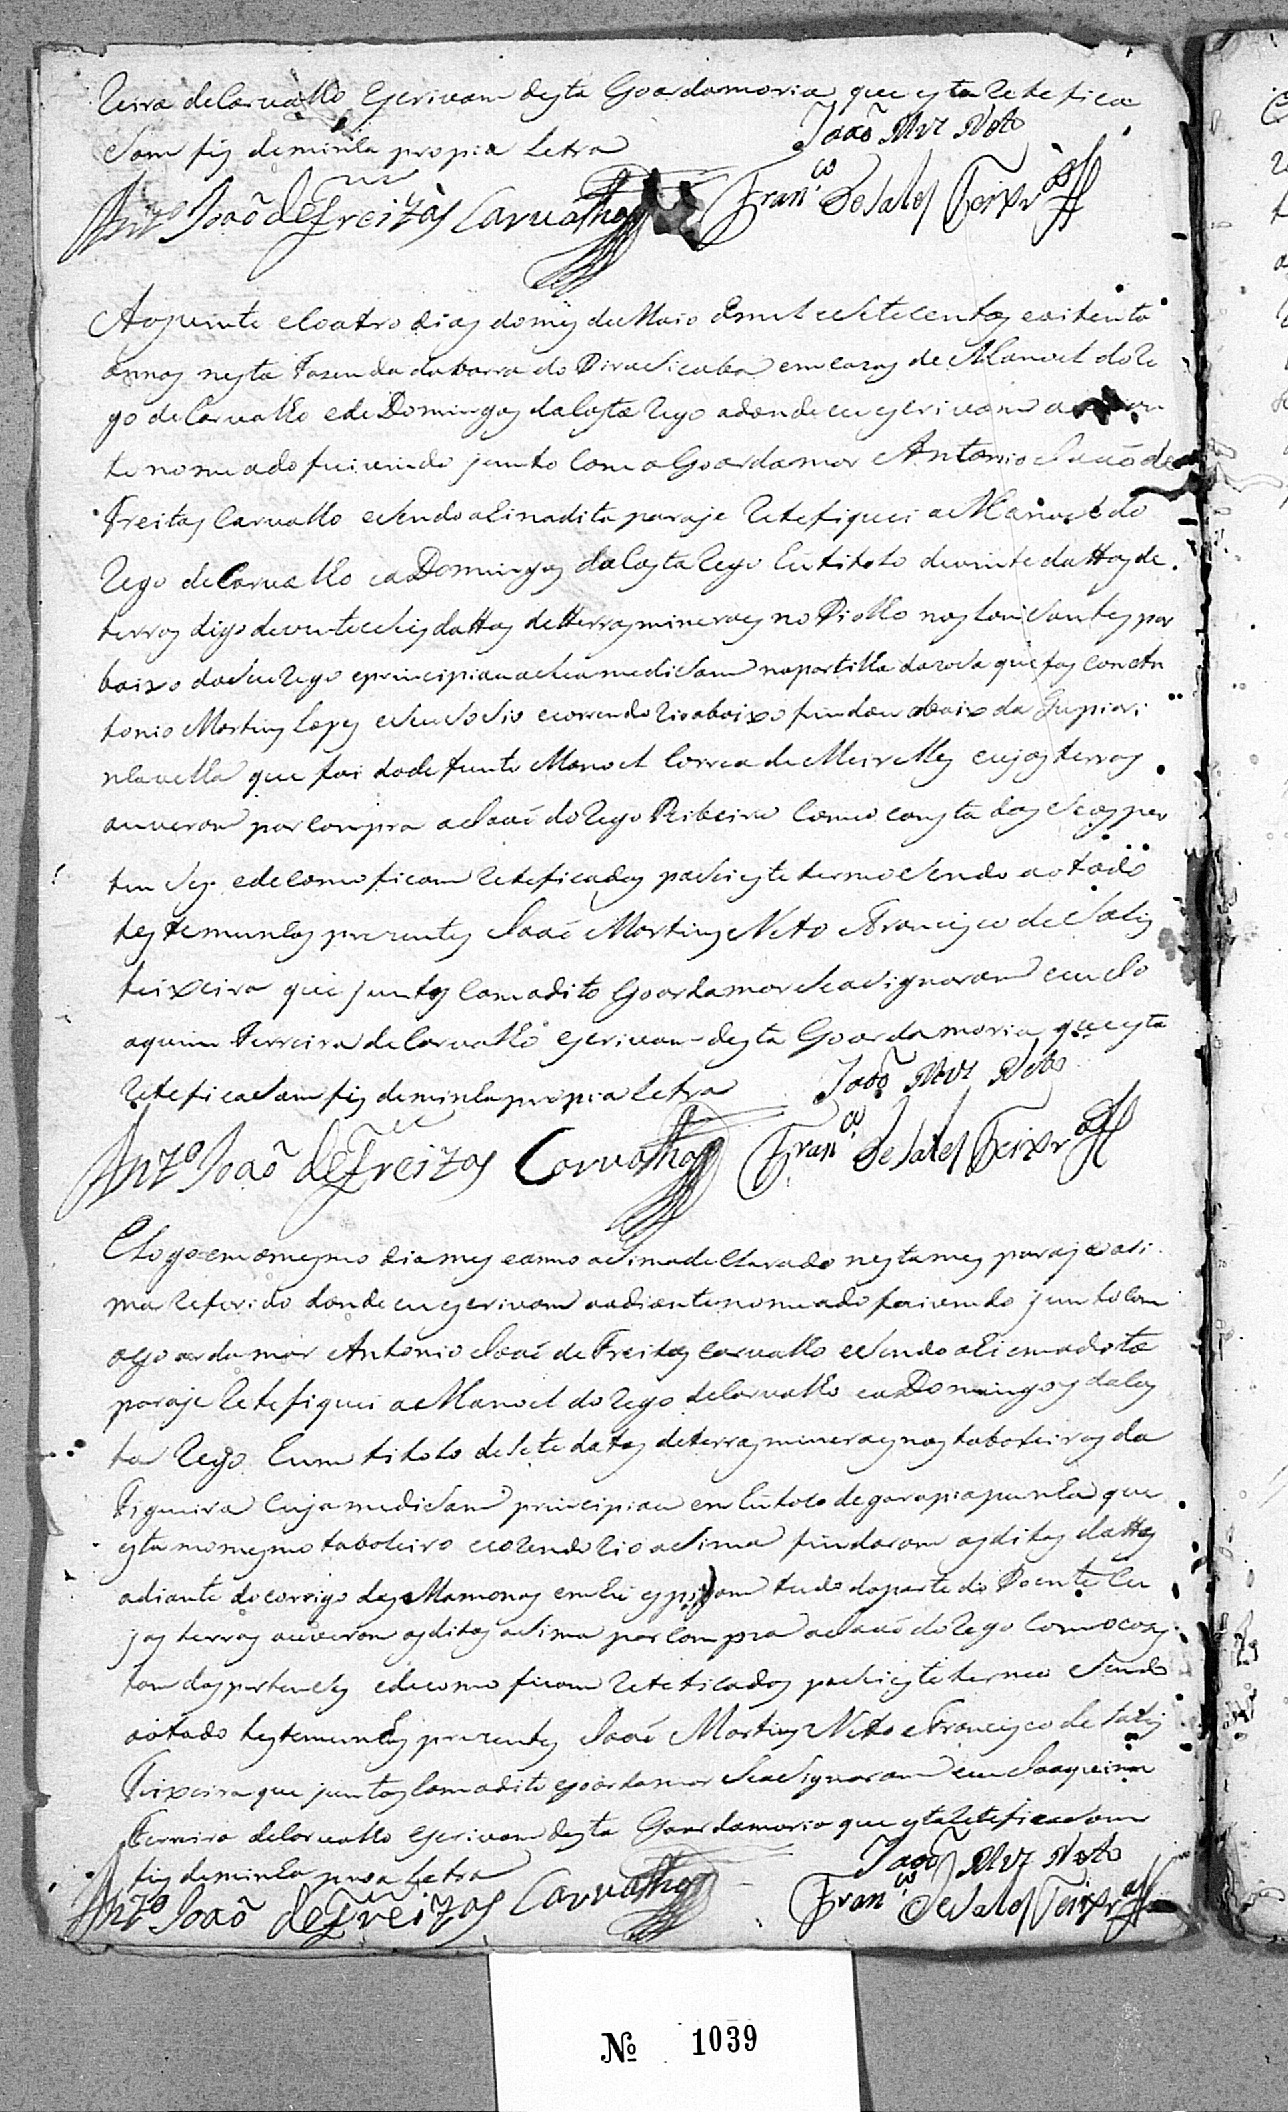 reira de Carvalho Escrivam desta Goardamoria que esta Retefica
sam fis de minha propia Letra João Mrz Neto
Anto João de Freitas Carvalho Franco de Sales Teixra
Aos vinte e coatro dias do mes de Maio de mil e Setecentos e oitenta
annos nesta Fazenda da barra do Pirasicaba em cazas de Manoel do Re
go de Carvalho e de Domingos da Costa Rego adonde eu escrivam
te nomeado fui vindo junto com o Goardamor Antonio João de
Freitas Carvalho e sendo ali na dita paraje Retefiquei a Manoel do
Rego de Carvalho e a Domingos da Costa Rego hũ titolo de vinte dattas de
terras digo de vinte e seis dattas de tterras mineraes no Piolho nas por
baixo do seu Rego e principiou a sua medisam na partilha da rosa que fas con An
tonio Martins Lopes e seu Sosio e correndo rio abaixo findou abaixo da Gupiari
nha velha que foi do defunto Manoel Correa de Meirelles cujas terras
ouveram por compra a João do Rego Ribeiro como consta das Suas per
tensas e de como ficam Reteficadas pasei este termo sendo a o todo
testemunhas prezentes João Martins Neto e Francisco de Salis
teixeira que juntos com o dito Goardamor se asignaram eu Jo
aquim Ferreira de Carvalho escrivam desta Goardamoria que esta
Reteficasam fis de minha propia Letra João Mrz Neto
Anto João de Freitas Carvalho Franco de Sales Teixra
E logo em o mesmo dia mes e anno asima declarado nesta mes paraje asi
ma Referido donde eu escrivam o adiante nomeado fui vindo junto com
o goardamor Antonio João de Freitas Carvalho e sendo ali em a dita
paraje Retefiquei a Manoel do Rego de Carvalho e a Domingos da Cos
ta Rego hum titolo de sete datas de terras mineraes nos taboleiros da
Figueira cuja medisam principiou em hũ toco de garapiapunha que
esta no mesmo taboleiro e corendo rio asima findaram as ditas dattas
adiante do corrigo das Mamonas em hũ espigam tudo da parte do Poente Cu
jas terras ouveram os ditos asima por compra a João do Rego como cons
tam das pertensas e de como ficam Reteficadas pasei este termo sendo
a o todo testemunhas prezentes João Martins Neto e Francisco de Salis
Teixeira que juntos com o dito goardamor se asignaram eu Joaquim
Ferreira de Carvalho escrivam desta Goardamoria que esta Reteficasam
fis de minha propia Letra João Mrz Neto
Anto João de Freitas Carvalho Franco de Sales Teixra
No 1039